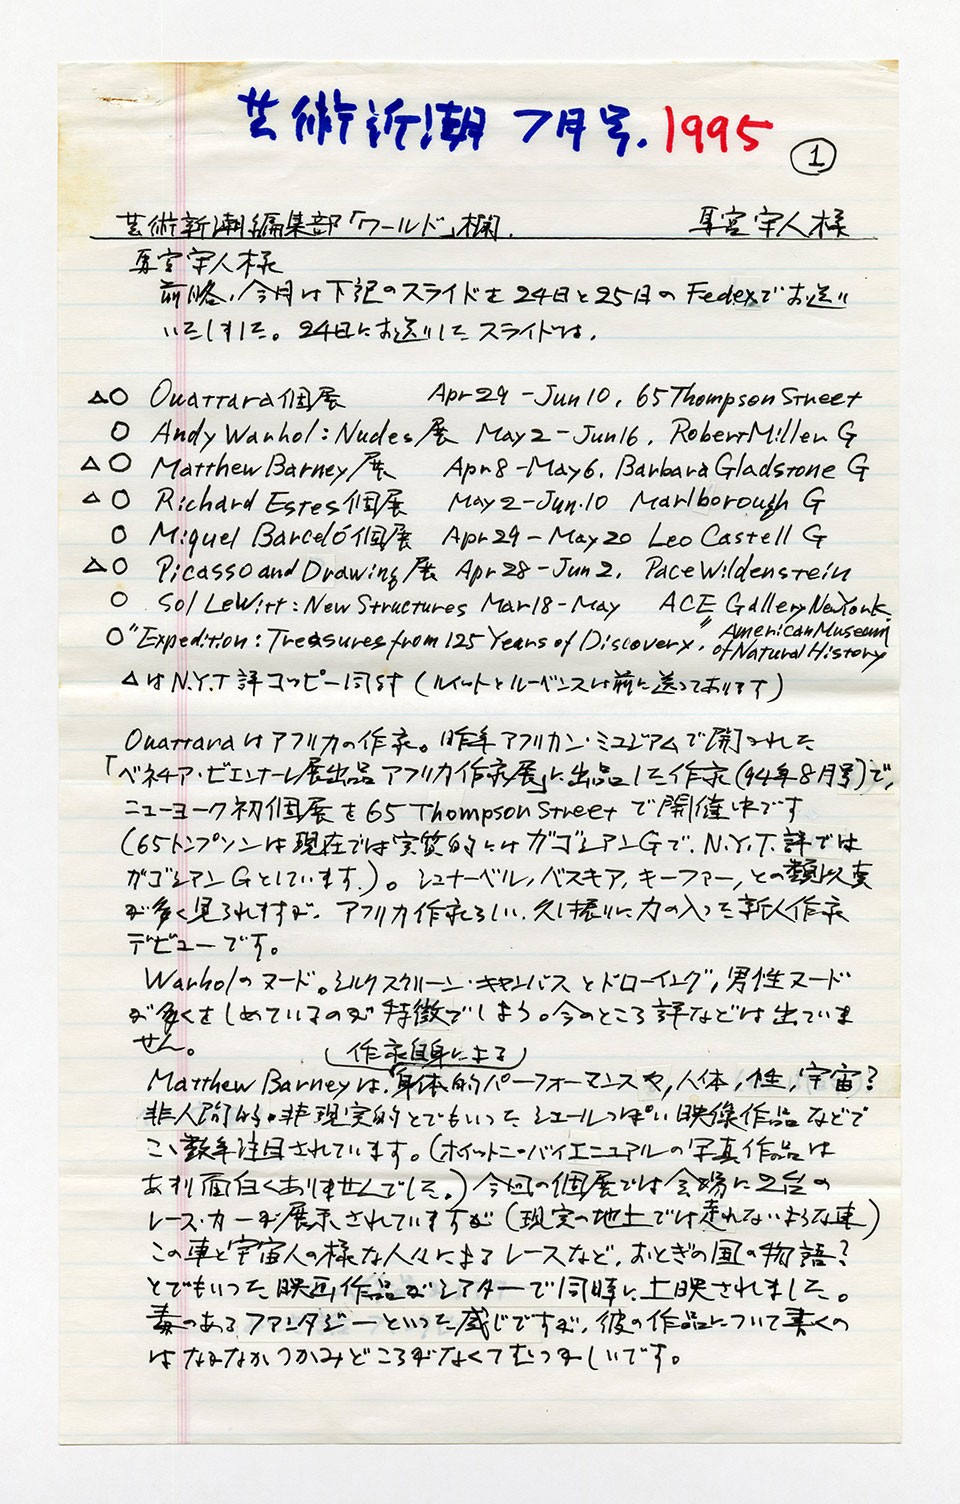 芸術新潮 7月号. 1995
①
芸術新潮編集部「ワールド」欄. 宮宇人様
宮宇人様
前略、今月は下記のスライドを24日と25日のFedexでお送り
いたしました。24日にお送りしたスライドは、
△○ Ouattara個展 Apr 29 - Jun 10, 65 Thompson Street
○ Andy Warhol: Nudes展 May 2 - Jun 16, Robert Miller G
△○ Matthew Barney展 Apr 8 - May 6, Barbara Gladstone G
△○ Richard Estes個展 May 2 - Jun. 10 Marlborough G
○ Miquel Barceló個展 Apr 29 - May 20 Leo Castell G
△○ Picasso and Drawing展 Apr 28 - Jun 2, PaceWildenstein
○ Sol LeWitt: New Structures Mar 18 - May ACE Gallery New York.
○ "Expedition: Treasures from 125 Years of Discovery," American Museum of Natural History
△はN.Y.T評コッピー同封(ルイットとルーベンスは前に送っております)
Ouattaraはアフリカの作家。昨年アフリカン・ミュジアムで開かれた
「ベネチア・ビエンナーレ展出品アフリカ作家展」に出品した作家(94年8月号)で、
ニューヨーク初個展を65 Thompson Streetで開催中です
(65トンプソンは現在では実質的にはガゴシアンGで、N.Y.T.評では
ガゴシアンGとしています.)。シュナーベル,バスキア,キーファー,との類似要
が多く見られますが、アフリカ作家らしい、久し振りに力の入った新人作家
デビューです。
Warholのヌード。シルクスクリーン・キャンバスとドローイング,男性ヌード
が多くをしめているのが特徴でしょう。今のところ評などは出ていま
せん。
(作家自身による)
Matthew Barneyは、身体的パーフォーマンスや,人体,性,宇宙?
非人間的・非現実的とでもいったシュールっぽい映像作品などで
ここ数年注目されています。(ホイットニー・バイエニュアルの写真作品は
あまり面白くありませんでした.)今回の個展では会場に2台の
レース・カーが展示されていますが(現実の地上では走れないような車)
この車と宇宙人の様な人々によるレースなど、おとぎの国の物語?
とでもいった映画作品がシアターで同時に上映されました。
毒のあるファンタジーといった感じですが、彼の作品について書くの
はなかなかつかみどころがなくてむつかしいです。